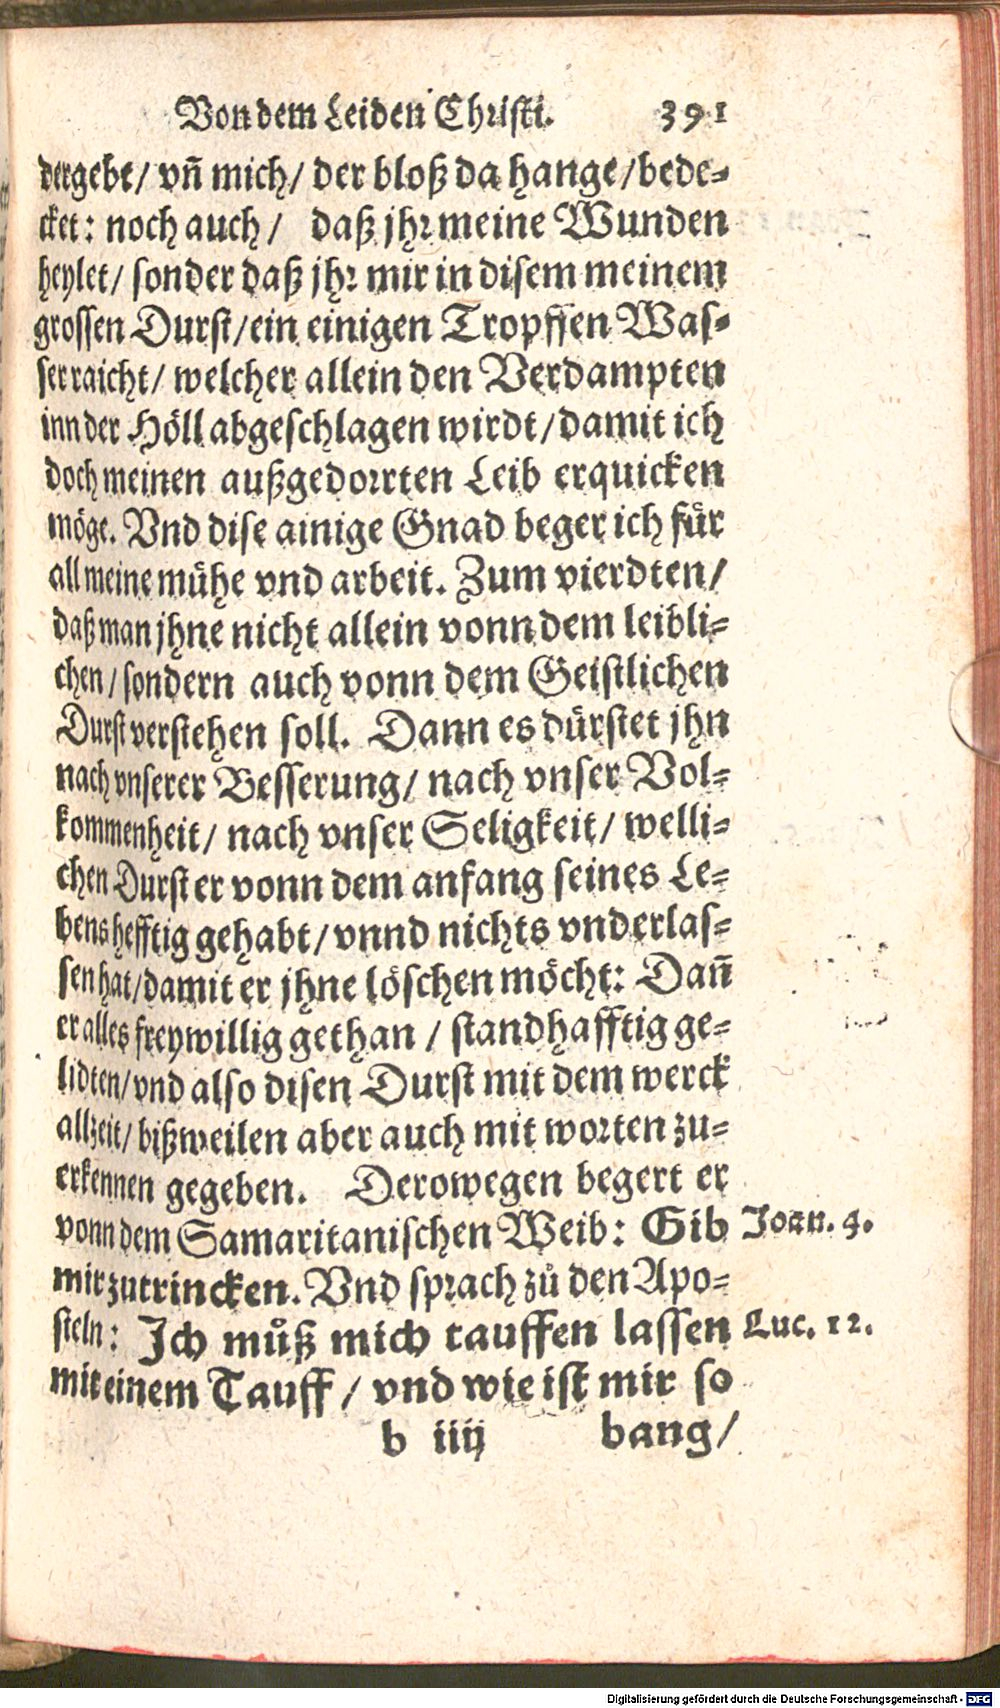 Von dem Leiden Christi. 391
dergebt/ vñ mich/ der bloß da hange/ bede-
cket: noch auch/ daß jhr meine Wunden
heylet/ sonder daß jhr mir in disem meinem
grossen Durst/ ein einigen Tropffen Was-
ser raicht/ welcher allein den Verdampten
inn der Höll abgeschlagen wirdt/ damit ich
doch meinen außgedorrten Leib erquicken
möge. Vnd dise ainige Gnad beger ich für
all meine mühe vnd arbeit. Zum vierdten/
daß man jhne nicht allein vonn dem leibli-
chen/ sondern auch vonn dem Geistlichen
Durst verstehen soll. Dann es dürstet jhn
nach vnserer Besserung/ nach vnser Vol-
kommenheit/ nach vnser Seligkeit/ welli-
chen Durst er vonn dem anfang seines Le-
bens hefftig gehabt/ vnnd nichts vnderlas-
sen hat/ damit er jhne löschen möcht: Dañ
er alles freywillig gethan/ standhafftig ge-
lidten/ vnd also disen Durst mit dem werck
allzeit/ bißweilen aber auch mit worten zu-
erkennen gegeben. Derowegen begert er
vonn dem Samaritanischen Weib: Gib Joan. 4.
mir zutrincken. Vnd sprach zů den Apo-
steln: Ich můß mich tauffen lassen Luc. 12.
mit einem Tauff/ vnd wie ist mir so
b iiij bang/
Digitalisierung gefördert durch die Deutsche Forschungsgemeinschaft - DFG